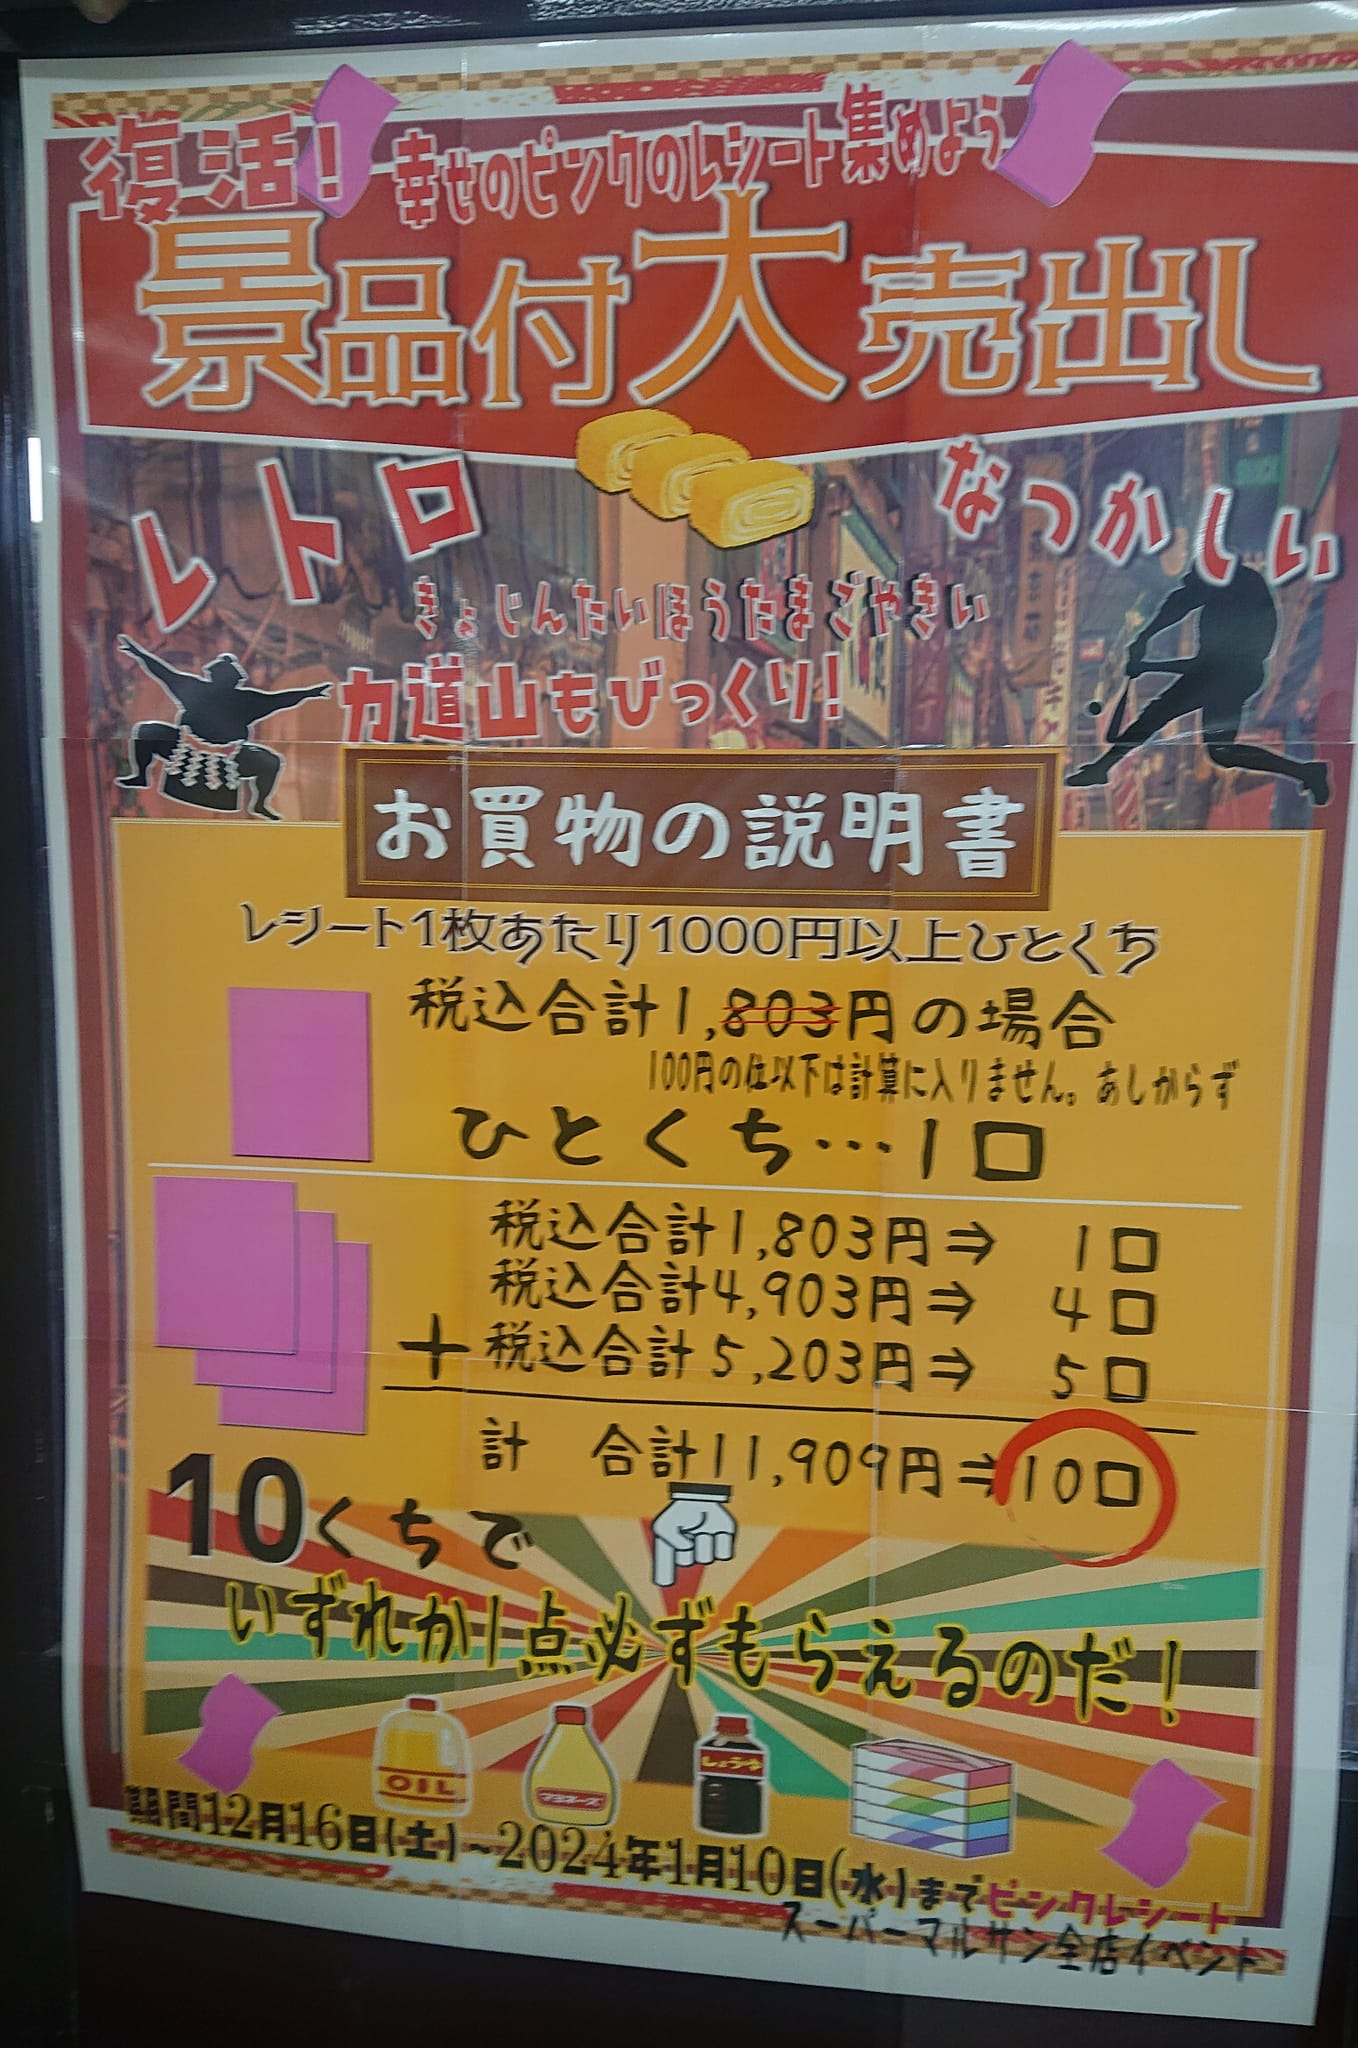 復活！幸せのピンクのレシート集めよう
景品付大売出し
レトロ
なつかしい
きょじんたいほうたまごやきい
力道山もびっくり！
お買物の説明書
レシート1枚あたり1000円以上ひとくち
税込合計1,803円の場合
100円の位以下は計算に入りません。あしからず
ひとくち…1口
税込合計1,803円⇒ 1口
税込合計4,903円⇒ 4口
＋税込合計5,203円⇒ 5口
計 合計11,909円⇒10口
10くちで
いずれか1点必ずもらえるのだ！
OIL
マヨネーズ
しょうゆ
期間12月16日(土)～2024年1月10日(水)までピンクレシート
スーパーマルサン全店イベント